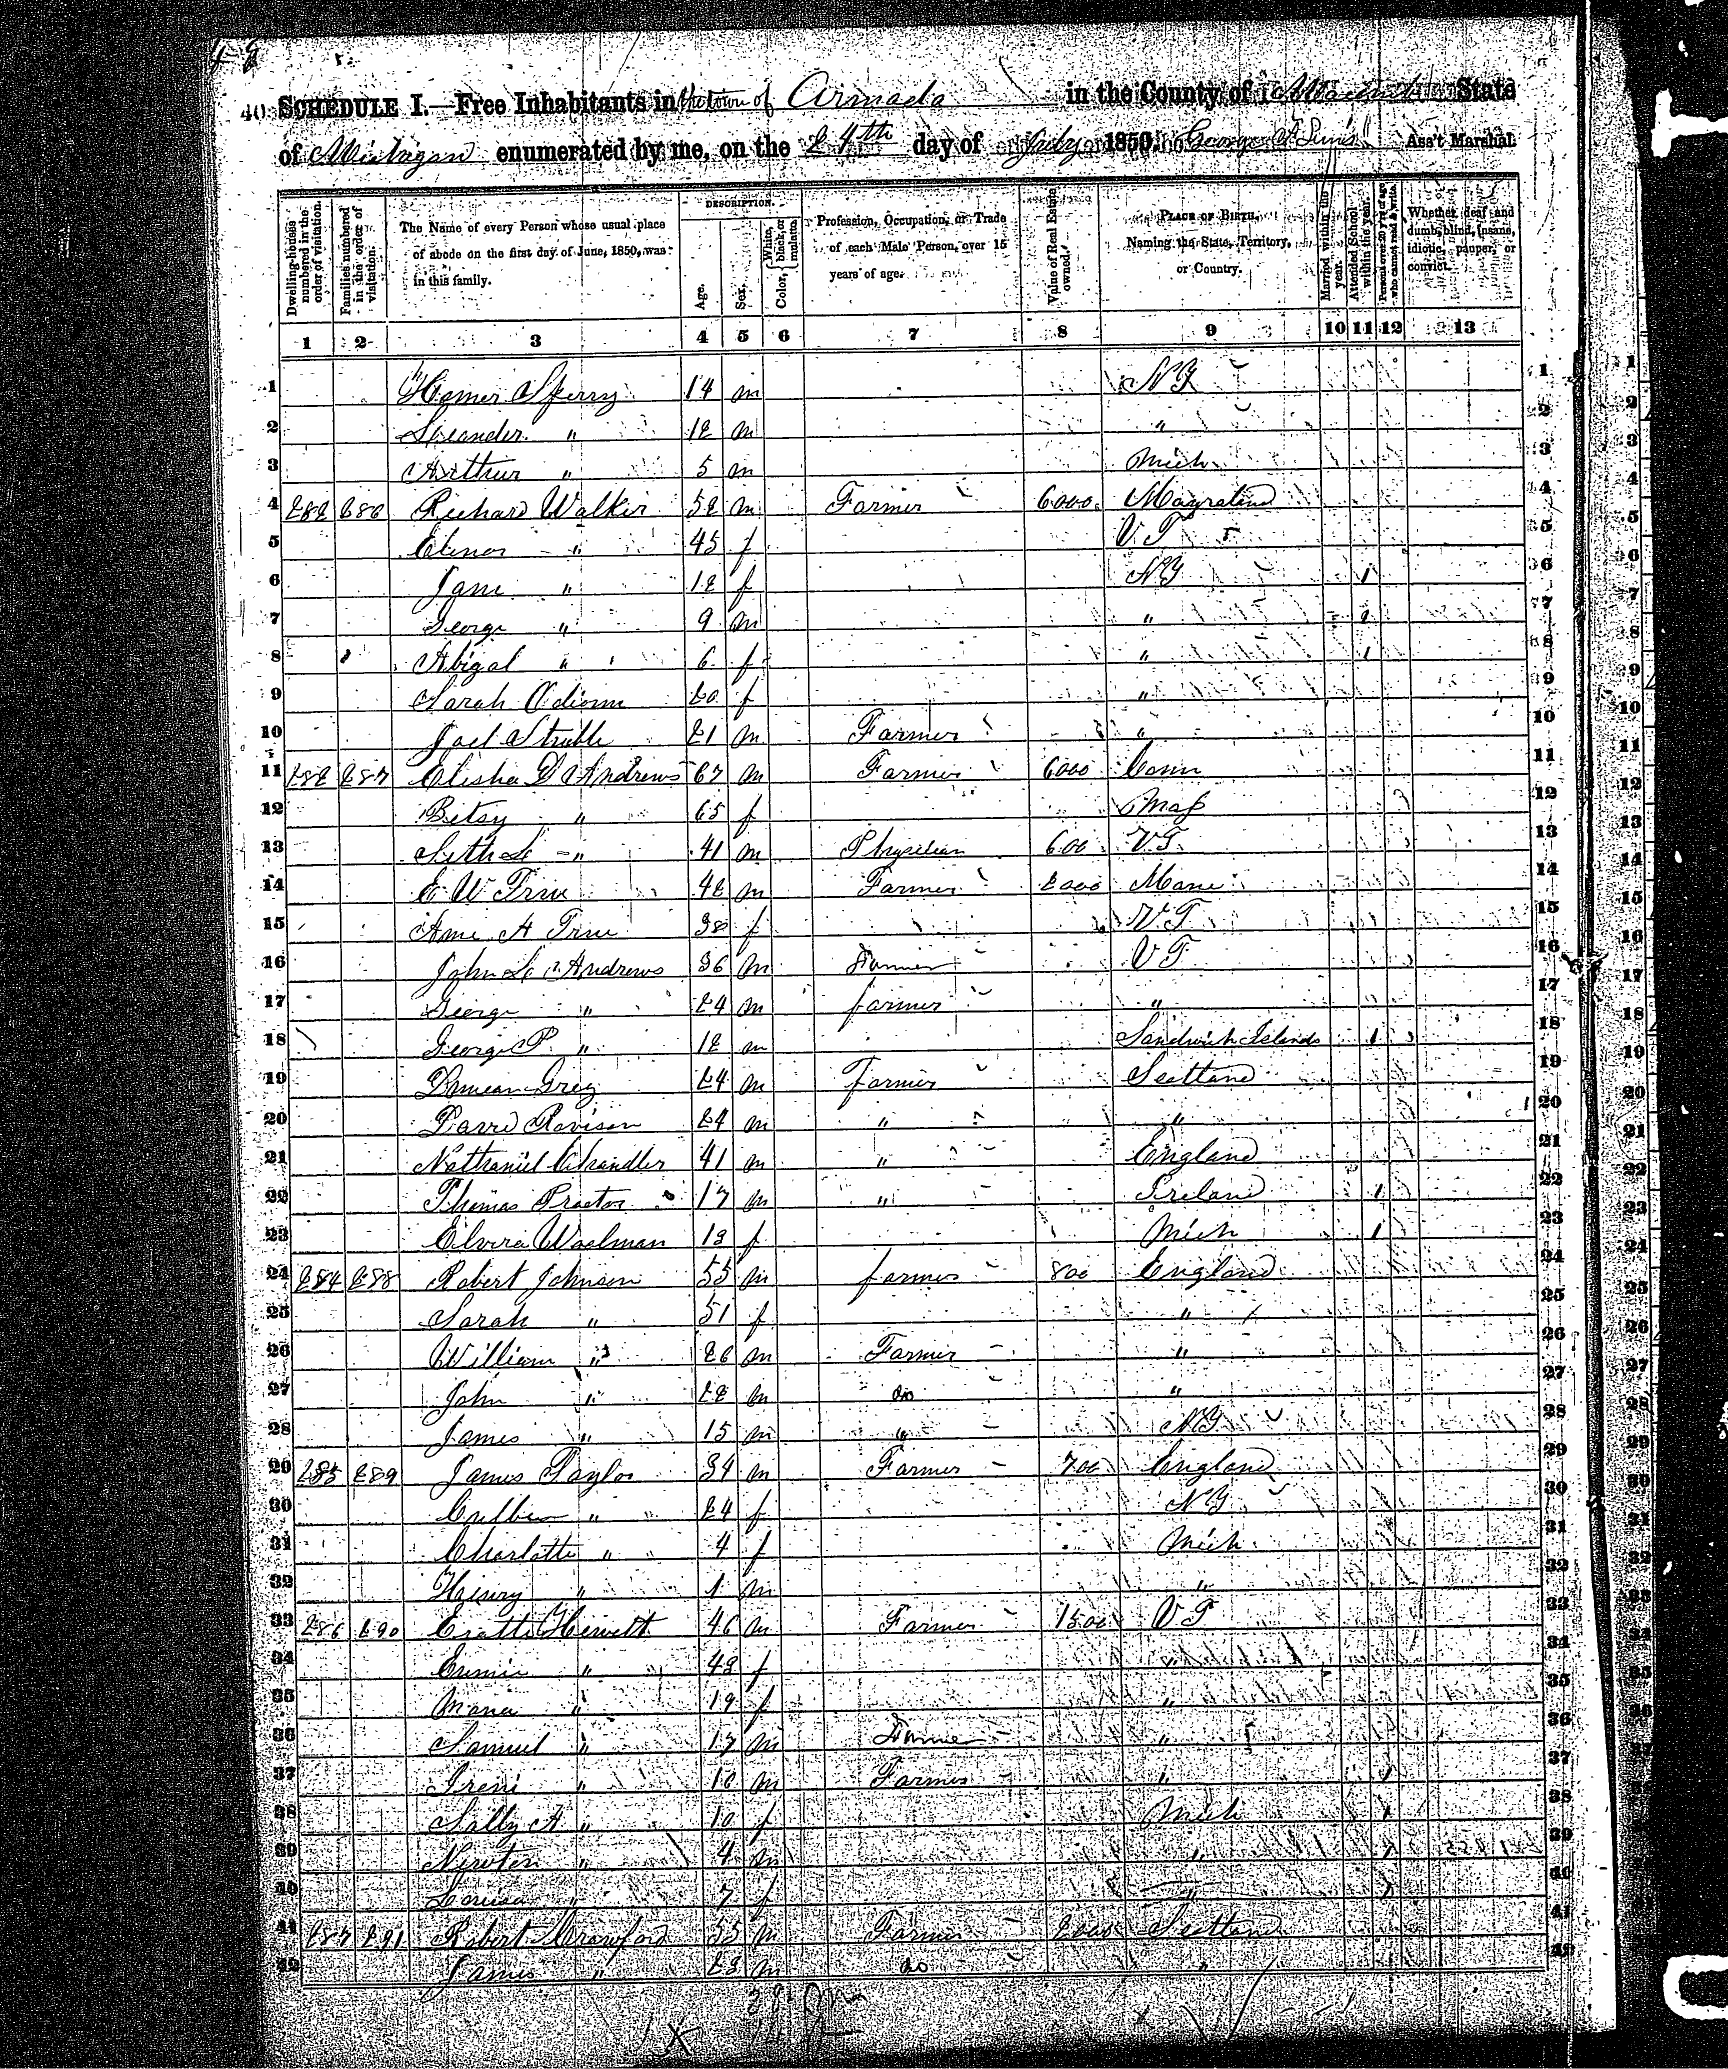 40
SCHEDULE I.—Free Inhabitants in the town of Armada in the County of State
of Michigan enumerated by me, on the 24th day of July 1850. George Ass't Marshal.
Dwelling-houses numbered in the order of visitation.
Families numbered in the order of visitation.
The Name of every Person whose usual place of abode on the first day of June, 1850, was in this family.
DESCRIPTION.
Age.
Sex.
Color, White, black, or mulatto.
Profession, Occupation, or Trade of each Male Person, over 15 years of age.
Value of Real Estate owned.
PLACE OF BIRTH. Naming the State, Territory, or Country.
Married within the year.
Attended School within the year.
Persons over 20 y'rs of age who cannot read & write.
Whether deaf and dumb, blind, insane, idiotic, pauper, or convict.
1 2 3 4 5 6 7 8 9 10 11 12 13
1 Homer Sperry 14 m NY 1
2 Leander " 12 m " 2
3 Arthur " 5 m Mich 3
4 282 286 Richard Walker 52 m Farmer 6000 Mayraland 4
5 Elenor " 45 f VT 5
6 Jane " 12 f NY 1 6
7 George " 9 m " 1 7
8 Abigal " 6 f " 1 8
9 Sarah 20 f " 9
10 Joel Struble 21 m Farmer " 10
11 282 287 Elisha D Andrews 67 m Farmer 6000 Conn 11
12 Betsy " 65 f Mass 12
13 Seth L " 41 m Physician 600 VT 13
14 E W True 42 m Farmer 2000 Mane 14
15 Ame A True 38 f VT 15
16 John L Andrews 36 m Farmer VT 16
17 George " 24 m farmer " 17
18 George P " 12 m Sandwich Islands 1 18
19 Duncan Greig 24 m Farmer Scotland 19
20 David 24 m " " 20
21 Nathaniel Chandler 41 m " England 21
22 Thomas Proctor 17 m " Ireland 1 22
23 Elvira 13 f Mich 1 23
24 284 288 Robert Johnson 55 m farmer 800 England 24
25 Sarah " 51 f " 25
26 William " 26 m Farmer " 26
27 John " 22 m do " 27
28 James " 15 m " NY 28
29 285 289 James Taylor 34 m Farmer 700 England 29
30 " 24 f NY 30
31 Charlotte " 4 f Mich 31
32 Henry " 1 m " 32
33 286 290 Hewett 46 m Farmer 1500 VT 33
34 " 43 f " 34
35 Maria " 19 f " 35
36 Samuel " 17 m Farmer " 36
37 Ireni " m Farmer " 1 37
38 Sally A " 10 f Mich 1 38
39 Newton " 4 m " 1 39
40 Louisa " 7 f " 1 40
41 287 291 Robert Crawford 55 m Farmer 2000 Scotland 41
42 James " 23 m do " 42